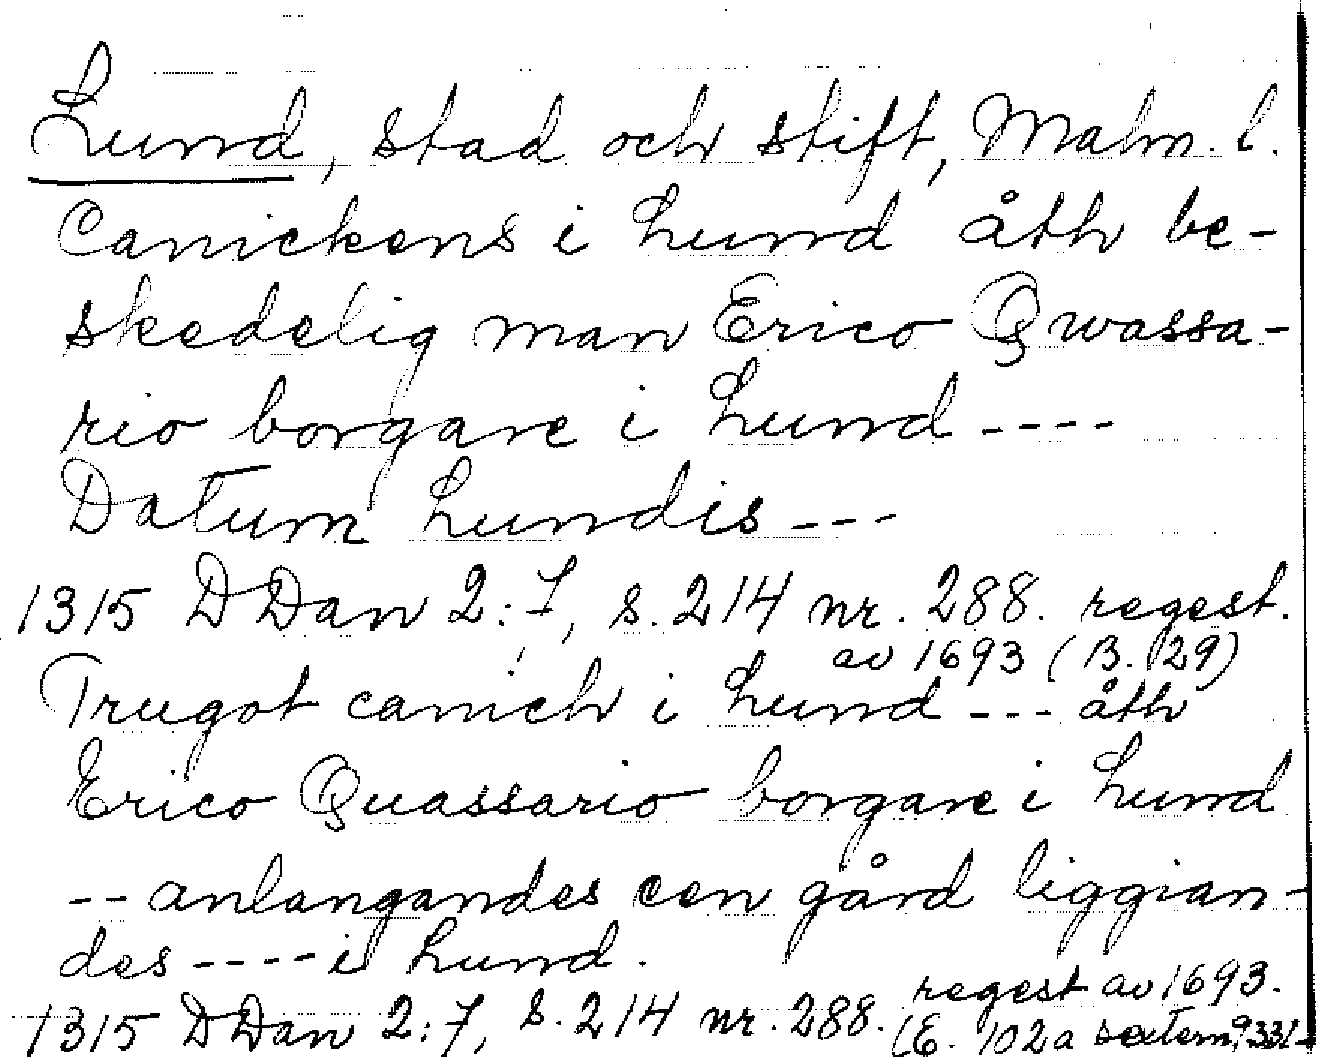 Lund, stad och stift, Malm. l.
Canickens i Lund åth be-
skedelig man Erico Qwassa-
rio borgare i Lund ----
Datum Lundis ---
1315 DDan 2:7, s. 214 nr. 288. regest.
av 1693 (B. 129)
Trugot canich i Lund --- åth
Erico Quassario borgare i Lund
-- anlangandes een gård liggian-
des ---- i Lund.
regest av 1693.
1315 DDan 2:7, s. 214 nr. 288.
(E. 102a